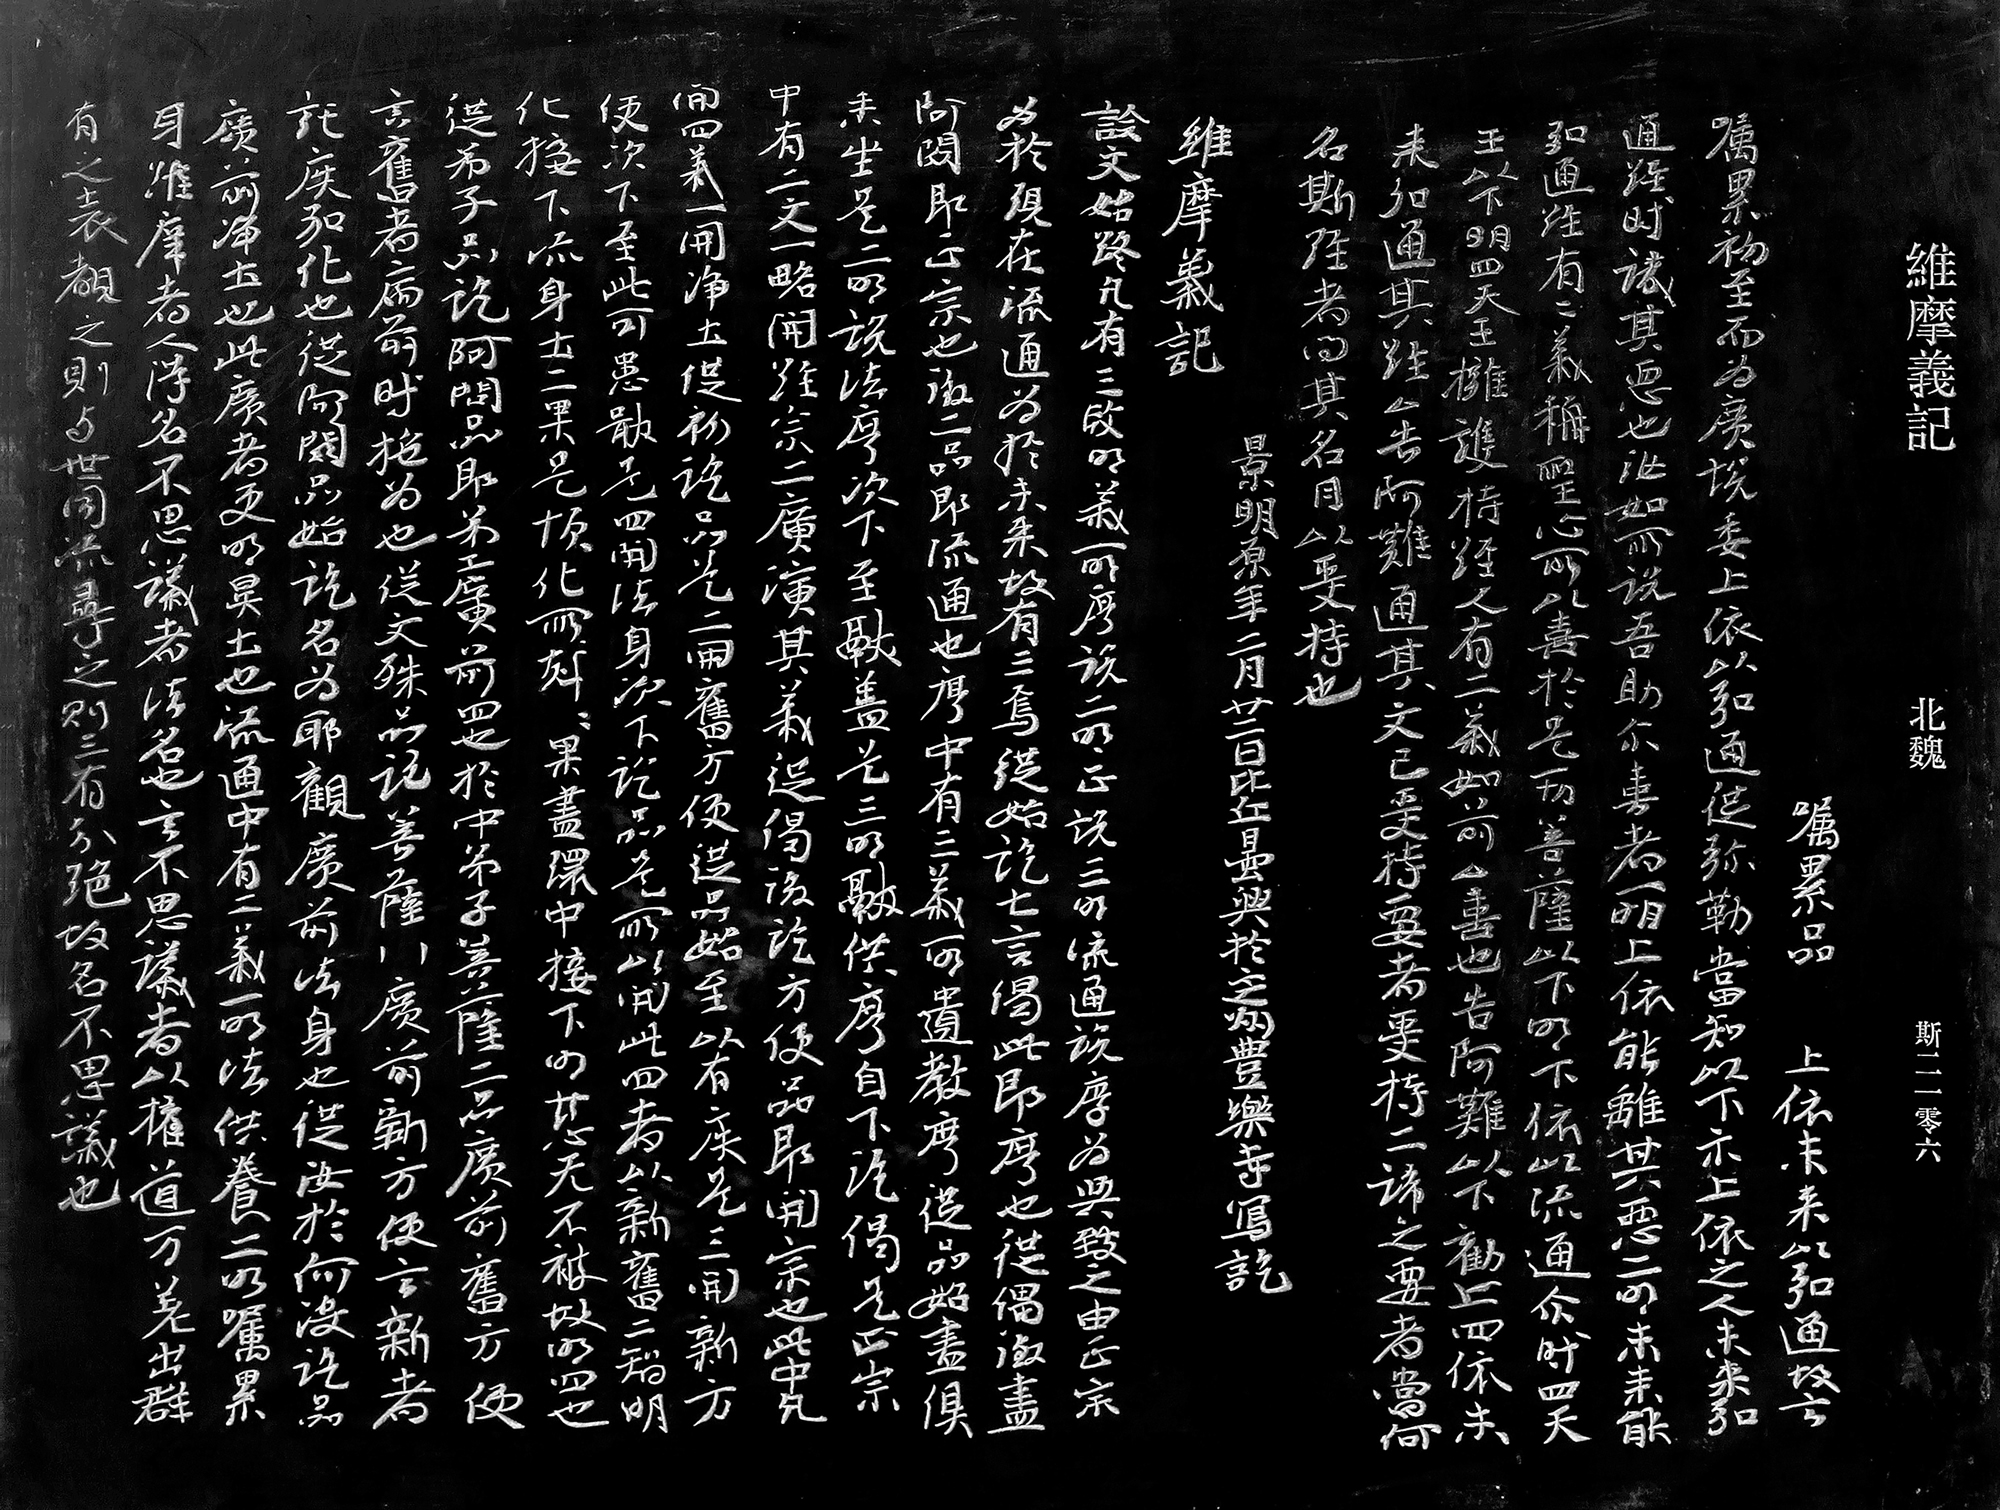 維摩義記　北魏　斯二一零六
囑累品　上依未來以弘通故云
囑累初至而為廣說委上依以弘通從弥勒當知以下示上依之人未來弘
通經時誡其惡也汝如所說吾助尒喜者一明上依能離其惡二明未來能
弘通經有二義稱聖心所以喜於是切菩薩以下明下依以流通尒時四天
王以下明四天王擁護持經人有二義如前亼喜也告阿難以下勸上四依未
來弘通其經亼告阿難通其文已受持要者受持二諦之要者當何
名斯經者問其名目以受持也
景明原年二月廿二日比丘曇興於定州豊樂寺寫訖
維摩義記
說文始終凡有三段明義一明序說二明正說三明流通說序為興致之由正宗
為於現在流通為於未来故有三焉從始訖七言偈此即序也從偈後盡
阿閦即正宗也後二品即流通也序中有三義一明遺教序從品始盡俱
来坐是二明說法序次下至獻盖是三明獻供序自下訖偈是正宗
中有二文一略開經宗二廣演其義從偈後訖方便品即開宗也此中凡
開四義一開淨土從初訖品是二開舊方便從品始至以有疾是三開新方
便次下至此可患厭是四開法身次下訖品是所以開此四者以新舊二智明
化接下流身土二果是傾化所尅〻果盡還中接下明慈无不被故明四也
從弟子品訖阿閦品即第二廣前四也於中弟子菩薩二品廣前舊方便
言舊者而前時施為也從文殊品訖菩薩川廣前新方便言新者
託疾弘化也從阿閦品始訖名為耶觀廣前法身也從汝於何没訖品
廣前淨土也此廣者更明昊土也流通中有二義一明法供養二明囑累
身維摩者人淨名不思議者法名也言不思議者以權道万差出群
有之表覩之則与世同流尋之則三有尒絶故名不思議也